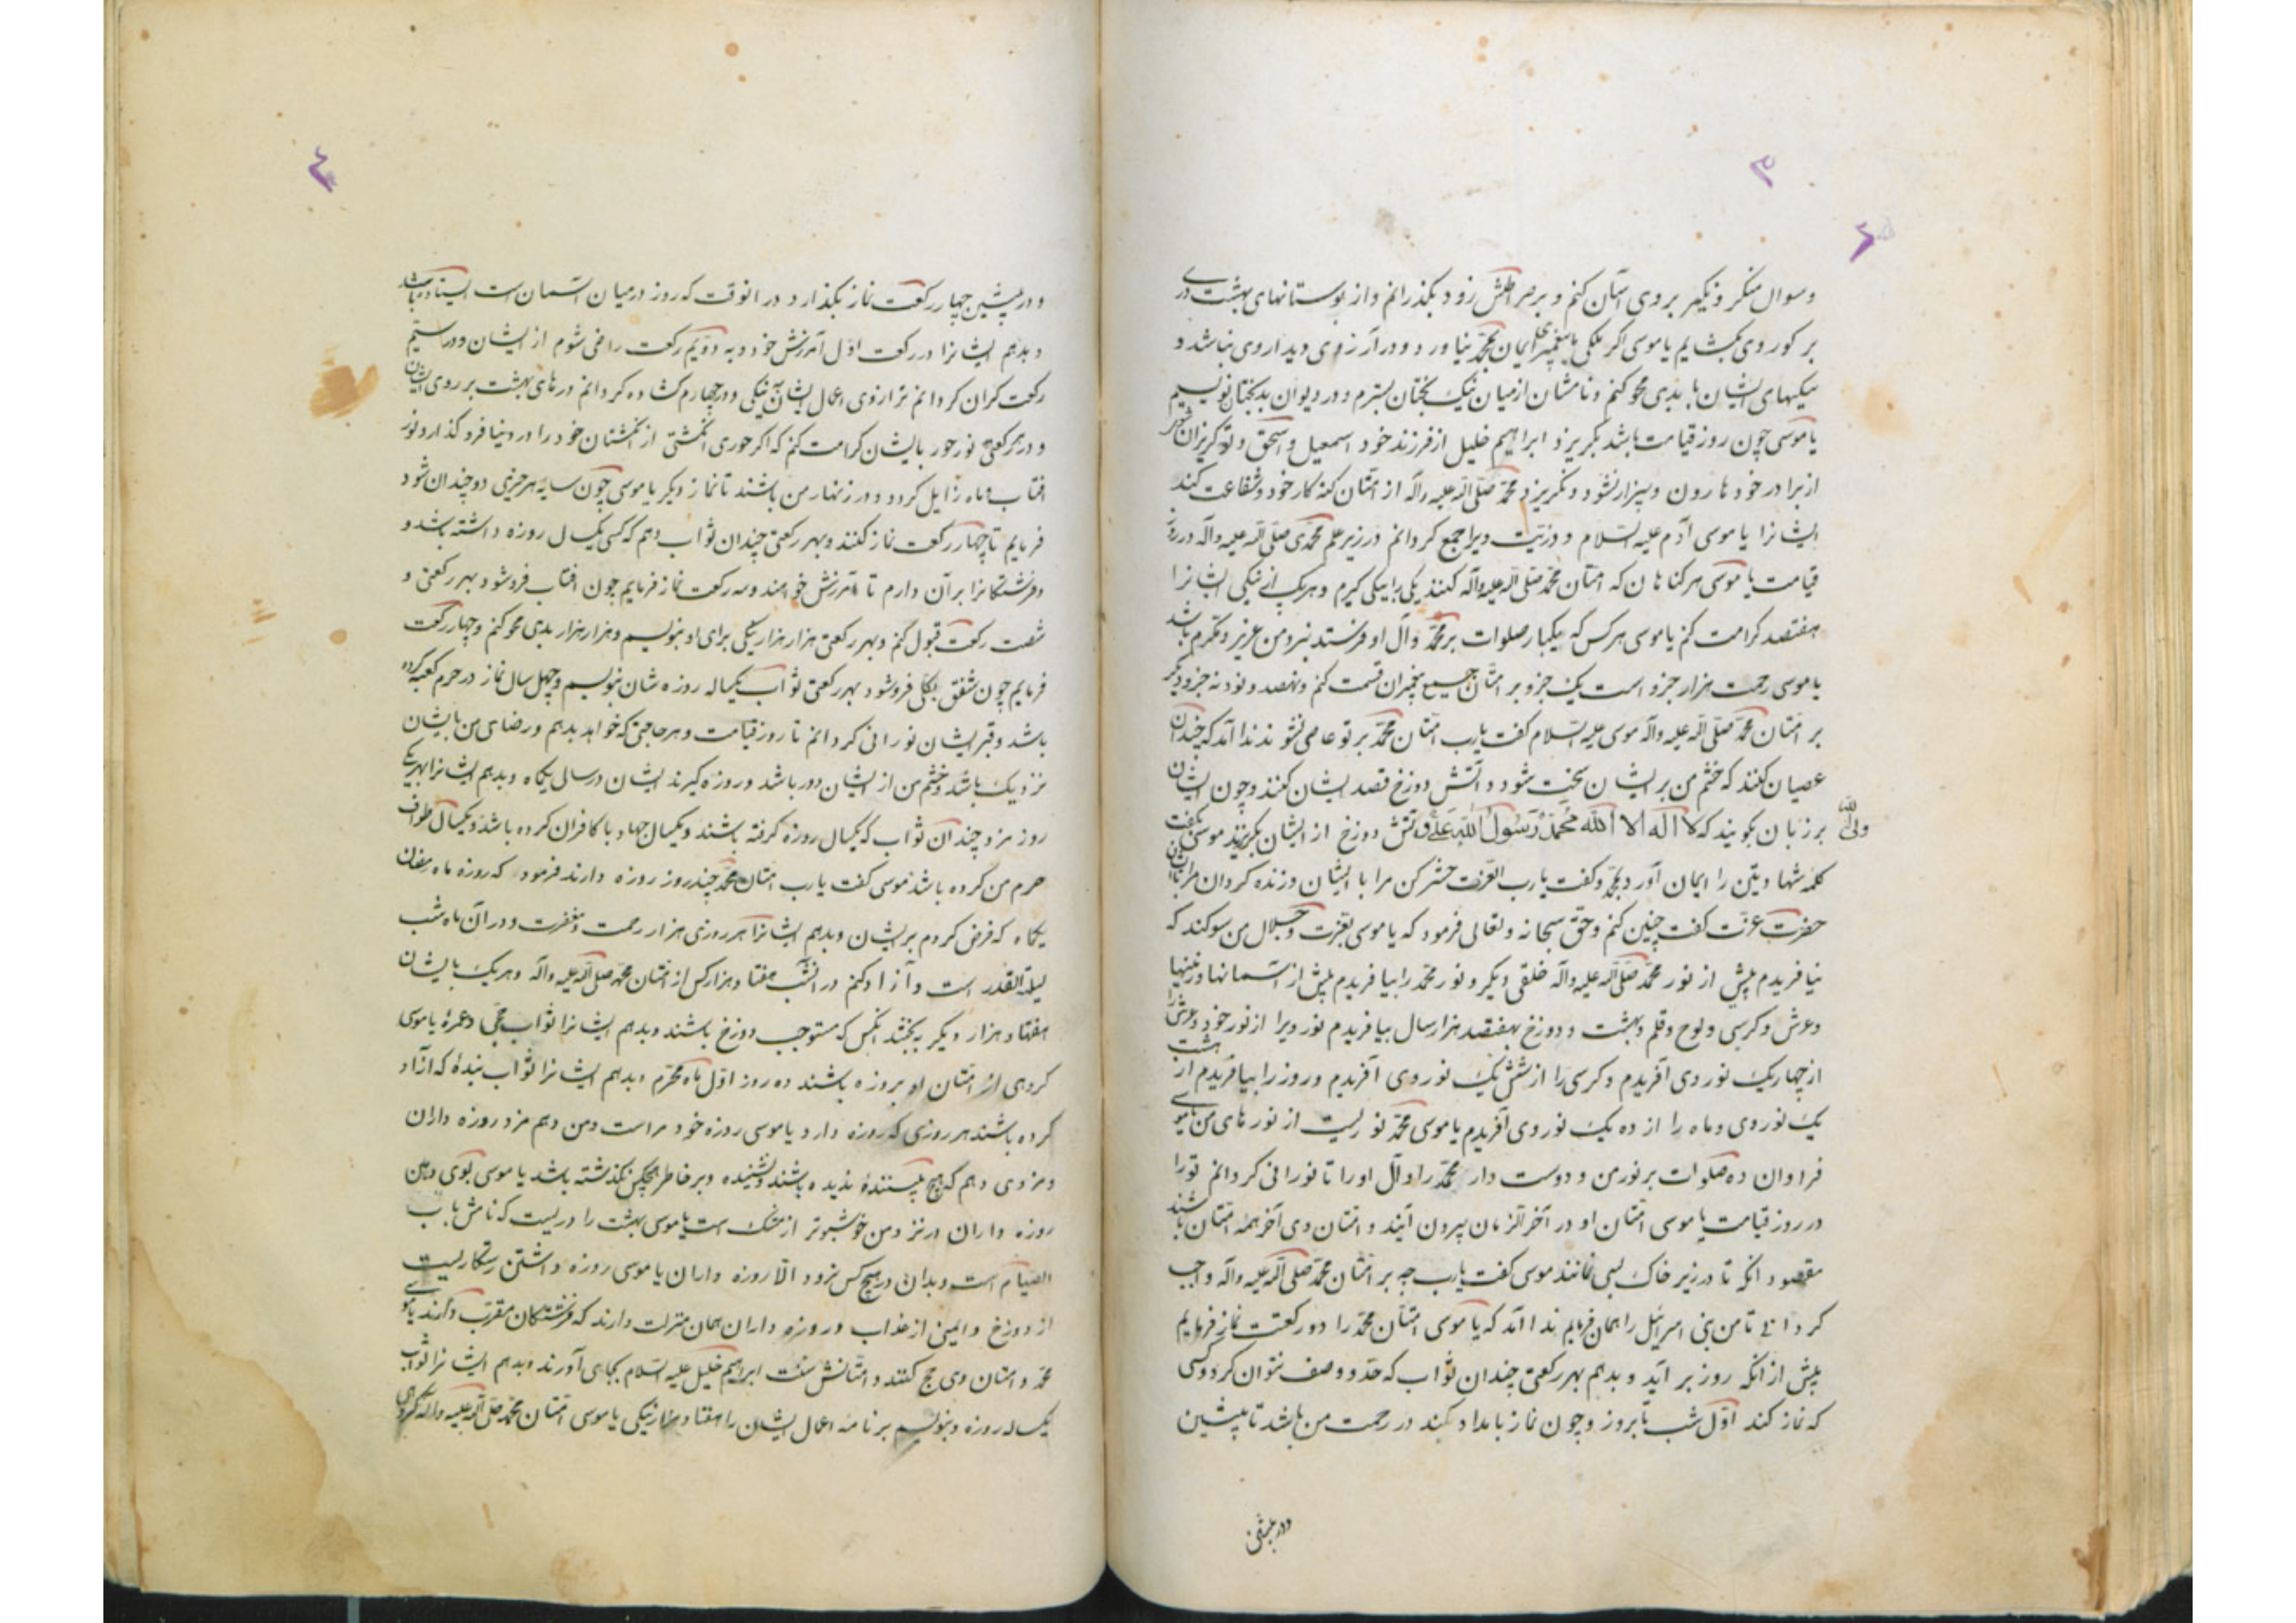 ۳
۲
وسوال منکر و نکیر بر وی آسان کنم و بر صراطش زود بگذرانم و از بوستانهای بهشت دری
بر کور وی بکشایم یا موسی اکر ملکی یا پیغمبری ایمان بمحمد نیاورد و در آرزوی دیدار وی نباشد و
نیکیهای ایشان با بدی محو کنم و نامشان از میان نیک بختان بسترم و در دیوان بدبختان نویسم
یا موسی چون روز قیامت باشد بکریزد ابراهیم خلیل از فرزند خود اسمعیل و اسحق و تو کریزان شوی
از برادر خود هارون و بیزار نشود و نکریزد محمد صلی الله علیه وآله از امتان کنه کار خود و شفاعت کند
ایشانرا یا موسی آدم علیه السلام و ذریت ویرا جمع کردانم در زیر علم محمدی صلی الله علیه وآله در روز
قیامت یا موسی هر کناهان که امتان محمد صلی الله علیه وآله کنند یکی را یکی کیرم و هر یک از نیکی ایشانرا
هفتصد کرامت کنم یا موسی هر کس که یکبار صلوات بر محمد وآل او فرستد نزد من عزیز و مکرم باشد
یا موسی رحمت هزار جزو است یک جزو بر امتان جمیع پیغمبران قسمت کنم و نهصد و نود نه جزو دیکر
بر امتان محمد صلی الله علیه وآله موسی علیه السلام کفت یارب امتان محمد بر تو عاصی نشوند ندا آمد که چندان
عصیان کنند که خشم من بر ایشان سخت شود و آتش دوزخ قصد ایشان کنند و چون ایشان
بر زبان بکویند که لا اله الا الله محمد رسول الله علی ولی الله آتش دوزخ از ایشان بکریزند موسی بکفت
کلمه شهادتین را ایمان آورد بمحمد وکفت یارب العزت حشر کن مرا با ایشان و زنده کردان مرا با ایشان
حضرت عزت کفت چنین کنم و حق سبحانه وتعالی فرمود که یا موسی بعزت و جلال من سوکند که
نیافریدم پیش از نور محمد صلی الله علیه وآله خلقی دیکر و نور محمد را بیافریدم پیش از آسمانها وزمینها
وعرش وکرسی ولوح وقلم وبهشت ودوزخ بهفتصد هزار سال بیافریدم نور ویرا از نور خود و عرش را
از چهار یک نور وی آفریدم وکرسی را از شش یک نور وی آفریدم و روز را بیافریدم از هشت
یک نور وی وماه را از ده یک نور وی آفریدم یا موسی محمد نوریست از نورهای من یا موسی
فراوان ده صلوات بر نور من و دوست دار محمد را وآل او را تا نورانی کردانم تو را
در روز قیامت یا موسی امتان او در آخرالزمان بیرون آیند و امتان وی آخر همه امتان باشند
مقصود آنکه تا در زیر خاک بسی نمانند موسی کفت یارب چه بر امتان محمد صلی الله علیه وآله واجب
کردانی تا من بنی اسرائیل را همان فرمایم ندا آمد که یا موسی امتان محمد را دو رکعت نماز فرمایم
پیش از آنکه روز بر آید و بدهم بهر رکعتی چندان ثواب که حد و وصف نتوان کرد و کسی
که نماز کند اول شب تا بروز وچون نماز بامداد بکند در رحمت من باشد تا پیشین
ودر پیشین
۴
ودر پیشین چهار رکعت نماز بکذارد در آنوقت که روز در میان آسمان است ایستاده باشد
و بدهم ایشانرا در رکعت اول آمرزش خود و به دویم رکعت راضی شوم از ایشان ودر سیم
رکعت کران کردانم ترازوی اعمال ایشان به نیکی و در چهارم کشاده کردانم درهای بهشت بر روی ایشان
و در هر رکعتی نور حور بایشان کرامت کنم که اکر حوری انکشتی از انکشتان خود را در دنیا فرو کذارد نور
آفتاب وماه زایل کردد و در زینهار من باشند تا نماز دیکر یا موسی چون سایه هر چیزی دو چندان شود
فرمایم تا چهار رکعت نماز کنند و بهر رکعتی چندان ثواب دهم که کسی یک سال روزه داشته باشد و
وفرشتکانرا بر آن دارم تا آمرزش خواهند وسه رکعت نماز فرمایم چون آفتاب فروشود بهر رکعتی و
شصت رکعت قبول کنم و بهر رکعتی هزار هزار نیکی برای او بنویسم وهزار هزار بدی محو کنم و چهار رکعت
فرمایم چون شفق بکلی فروشود بهر رکعتی ثواب یکساله روزه شان بنویسم وچهل سال نماز در حرم کعبه کرده
باشد و قبر ایشان نورانی کردانم تا روز قیامت و هر حاجتی که خواهد بدهم ورضای من بایشان
نزدیک باشد وخشم من از ایشان دور باشد و روزه کیرند ایشان در سالی یکماه و بدهم ایشانرا بهر یک
روز مزد چندان ثواب که یکسال روزه کرفته باشند و یکسال جهاد با کافران کرده باشد و یکسال طواف
حرم من کرده باشد موسی کفت یارب امتان محمد چند روز روزه دارند فرمود که روزه ماه رمضان
یکماه که فرض کردم بر ایشان و بدهم ایشانرا هر روزی هزار رحمت و مغفرت و در آن ماه شب
لیلة القدر است و آزاد کنم در آنشب هفتاد هزار کس از امتان محمد صلی الله علیه وآله و هر یک بایشان
هفتاد هزار دیکر بخشند آنکس که مستوجب دوزخ باشند و بدهم ایشانرا ثواب حجی و عمره یا موسی
کروهی از امتان او بروزه باشند ده روز اول ماه محرم و بدهم ایشانرا ثواب بنده که آزاد
کرده باشند هر روزی که روزه دارد یا موسی روزه خود مراست ومن دهم مزد روزه داران
ومزدی دهم که هیچ بیننده ندیده باشند و نشنیده و بر خاطر هیچکس نکذشته باشد یا موسی بوی دهن
روزه داران در نزد من خوشبوتر از مشک است یا موسی بهشت را دریست که نامش باب
الصیام است و بدان در هیچ کس نرود الا روزه داران یا موسی روزه داشتن رستکاریست
از دوزخ و ایمنی از عذاب و روزه داران همان منزلت دارند که فرشتکان مقرب دارند یا موسی
محمد و امتان وی حج کنند و امتانش سنت ابراهیم خلیل علیه السلام بجای آورند و بدهم ایشانرا ثواب
یکساله روزه و بنویسم بر نامه اعمال ایشان را هفتاد هزار نیکی یا موسی امتان محمد صلی الله علیه وآله کروهی